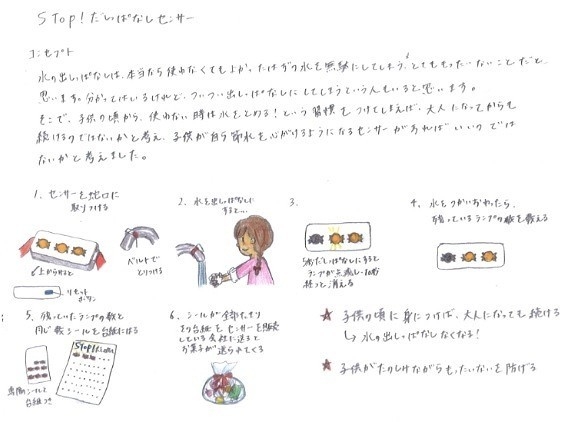 STOP!だしっぱなしセンサー
コンセプト
水の出しっぱなしは、本当なら使わなくてもよかったはずの水を無駄にしてしまう、とてももったいないことだと
思います。分かってはいるけれど、ついつい出しっぱなしにしてしまうという人もいると思います。
そこで、子供の頃から、使わない時は水をとめる!という習慣をつけてしまえば、大人になってからも
続けるのではないかと考え、子供が自ら節水を心がけるようになるセンサーがあればいいのでは
ないかと考えました。
1. センサーを蛇口に
取りつける
上から見ると
リセット
ボタン
ベルトで
とりつける
2. 水を出しっぱなしに
すると…
3.
5秒だしっぱなしにすると
ランプが点滅し
消える
4. 水をつかいおわったら、
残っているランプの数を数える
5. 残っていたランプの数と
同じ数シールを台紙にはる
STOP!
専用シールと
台紙つき
6. シールが全部たまり
台紙をセンサーを販売
している会社に送ると
お菓子が送られてくる
★ 子供の頃に身につけば、大人になっても続ける
↳ 水の出しっぱなしなくなる!
★ 子供がたのしみながらもったいないを防げる